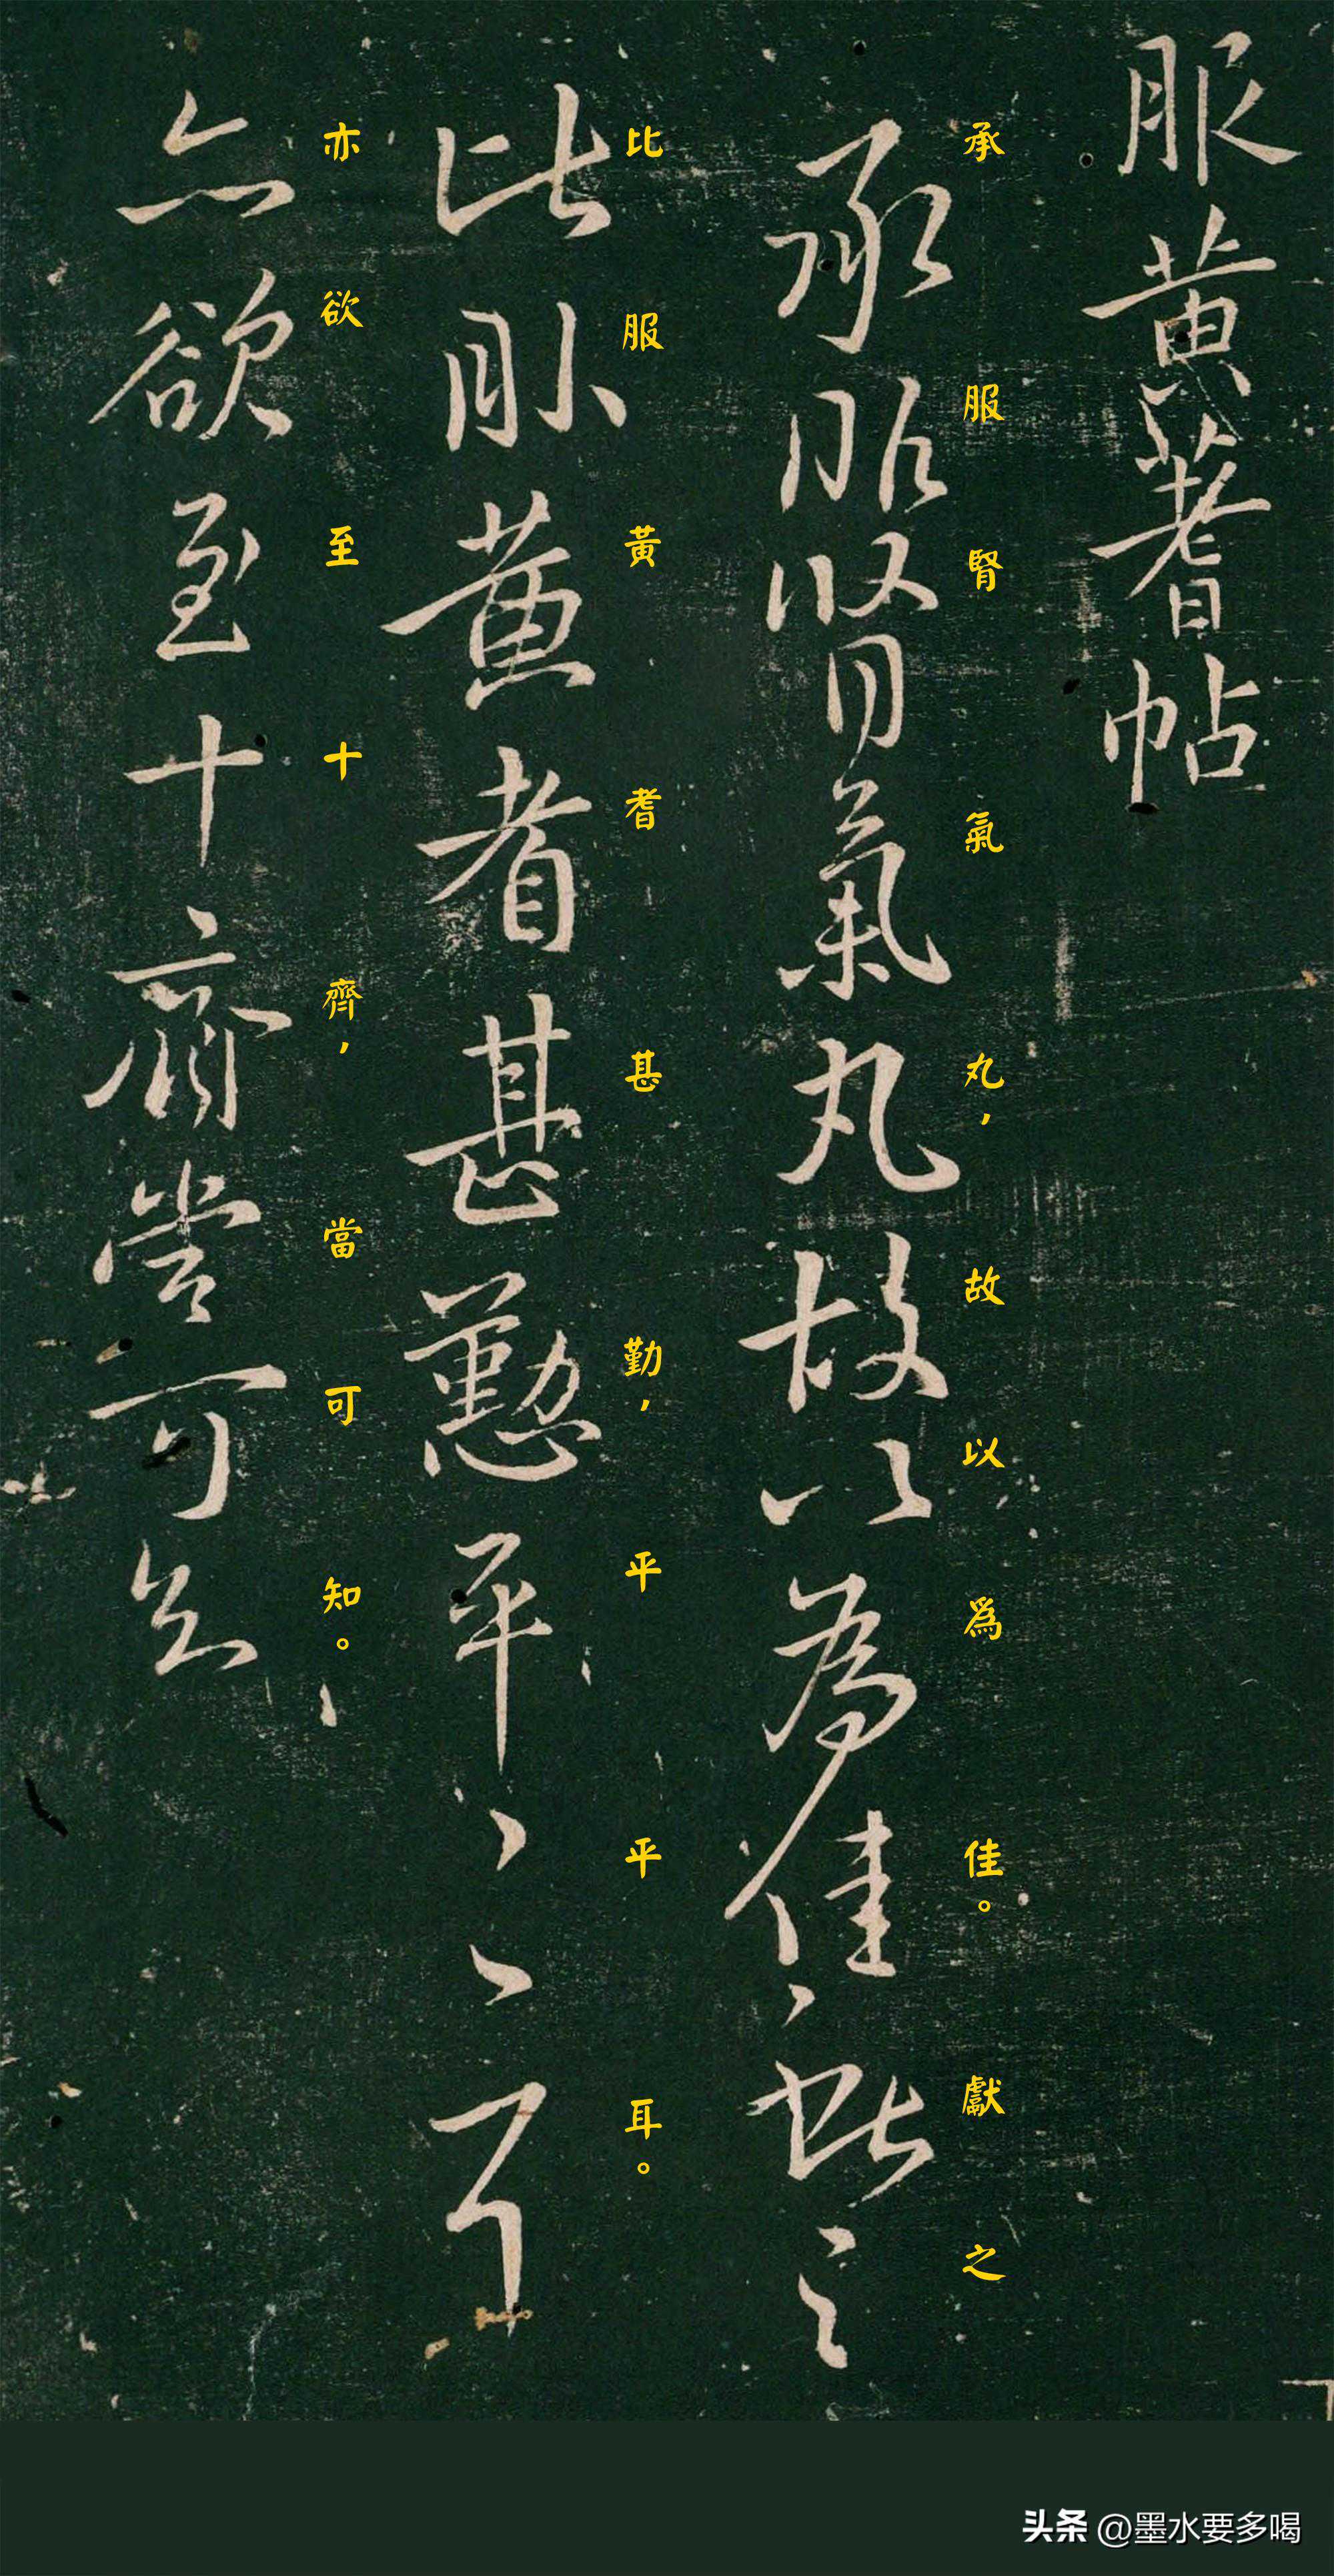 服黄蓍帖
承服腎氣丸，故以爲佳。獻之
承服腎氣丸故以為佳獻之
比服黃耆甚勤，平平耳。
比服黄耆甚懃平〻耳
亦欲至十齊，當可知。
亦欲至十齊當可知
头条 @墨水要多喝